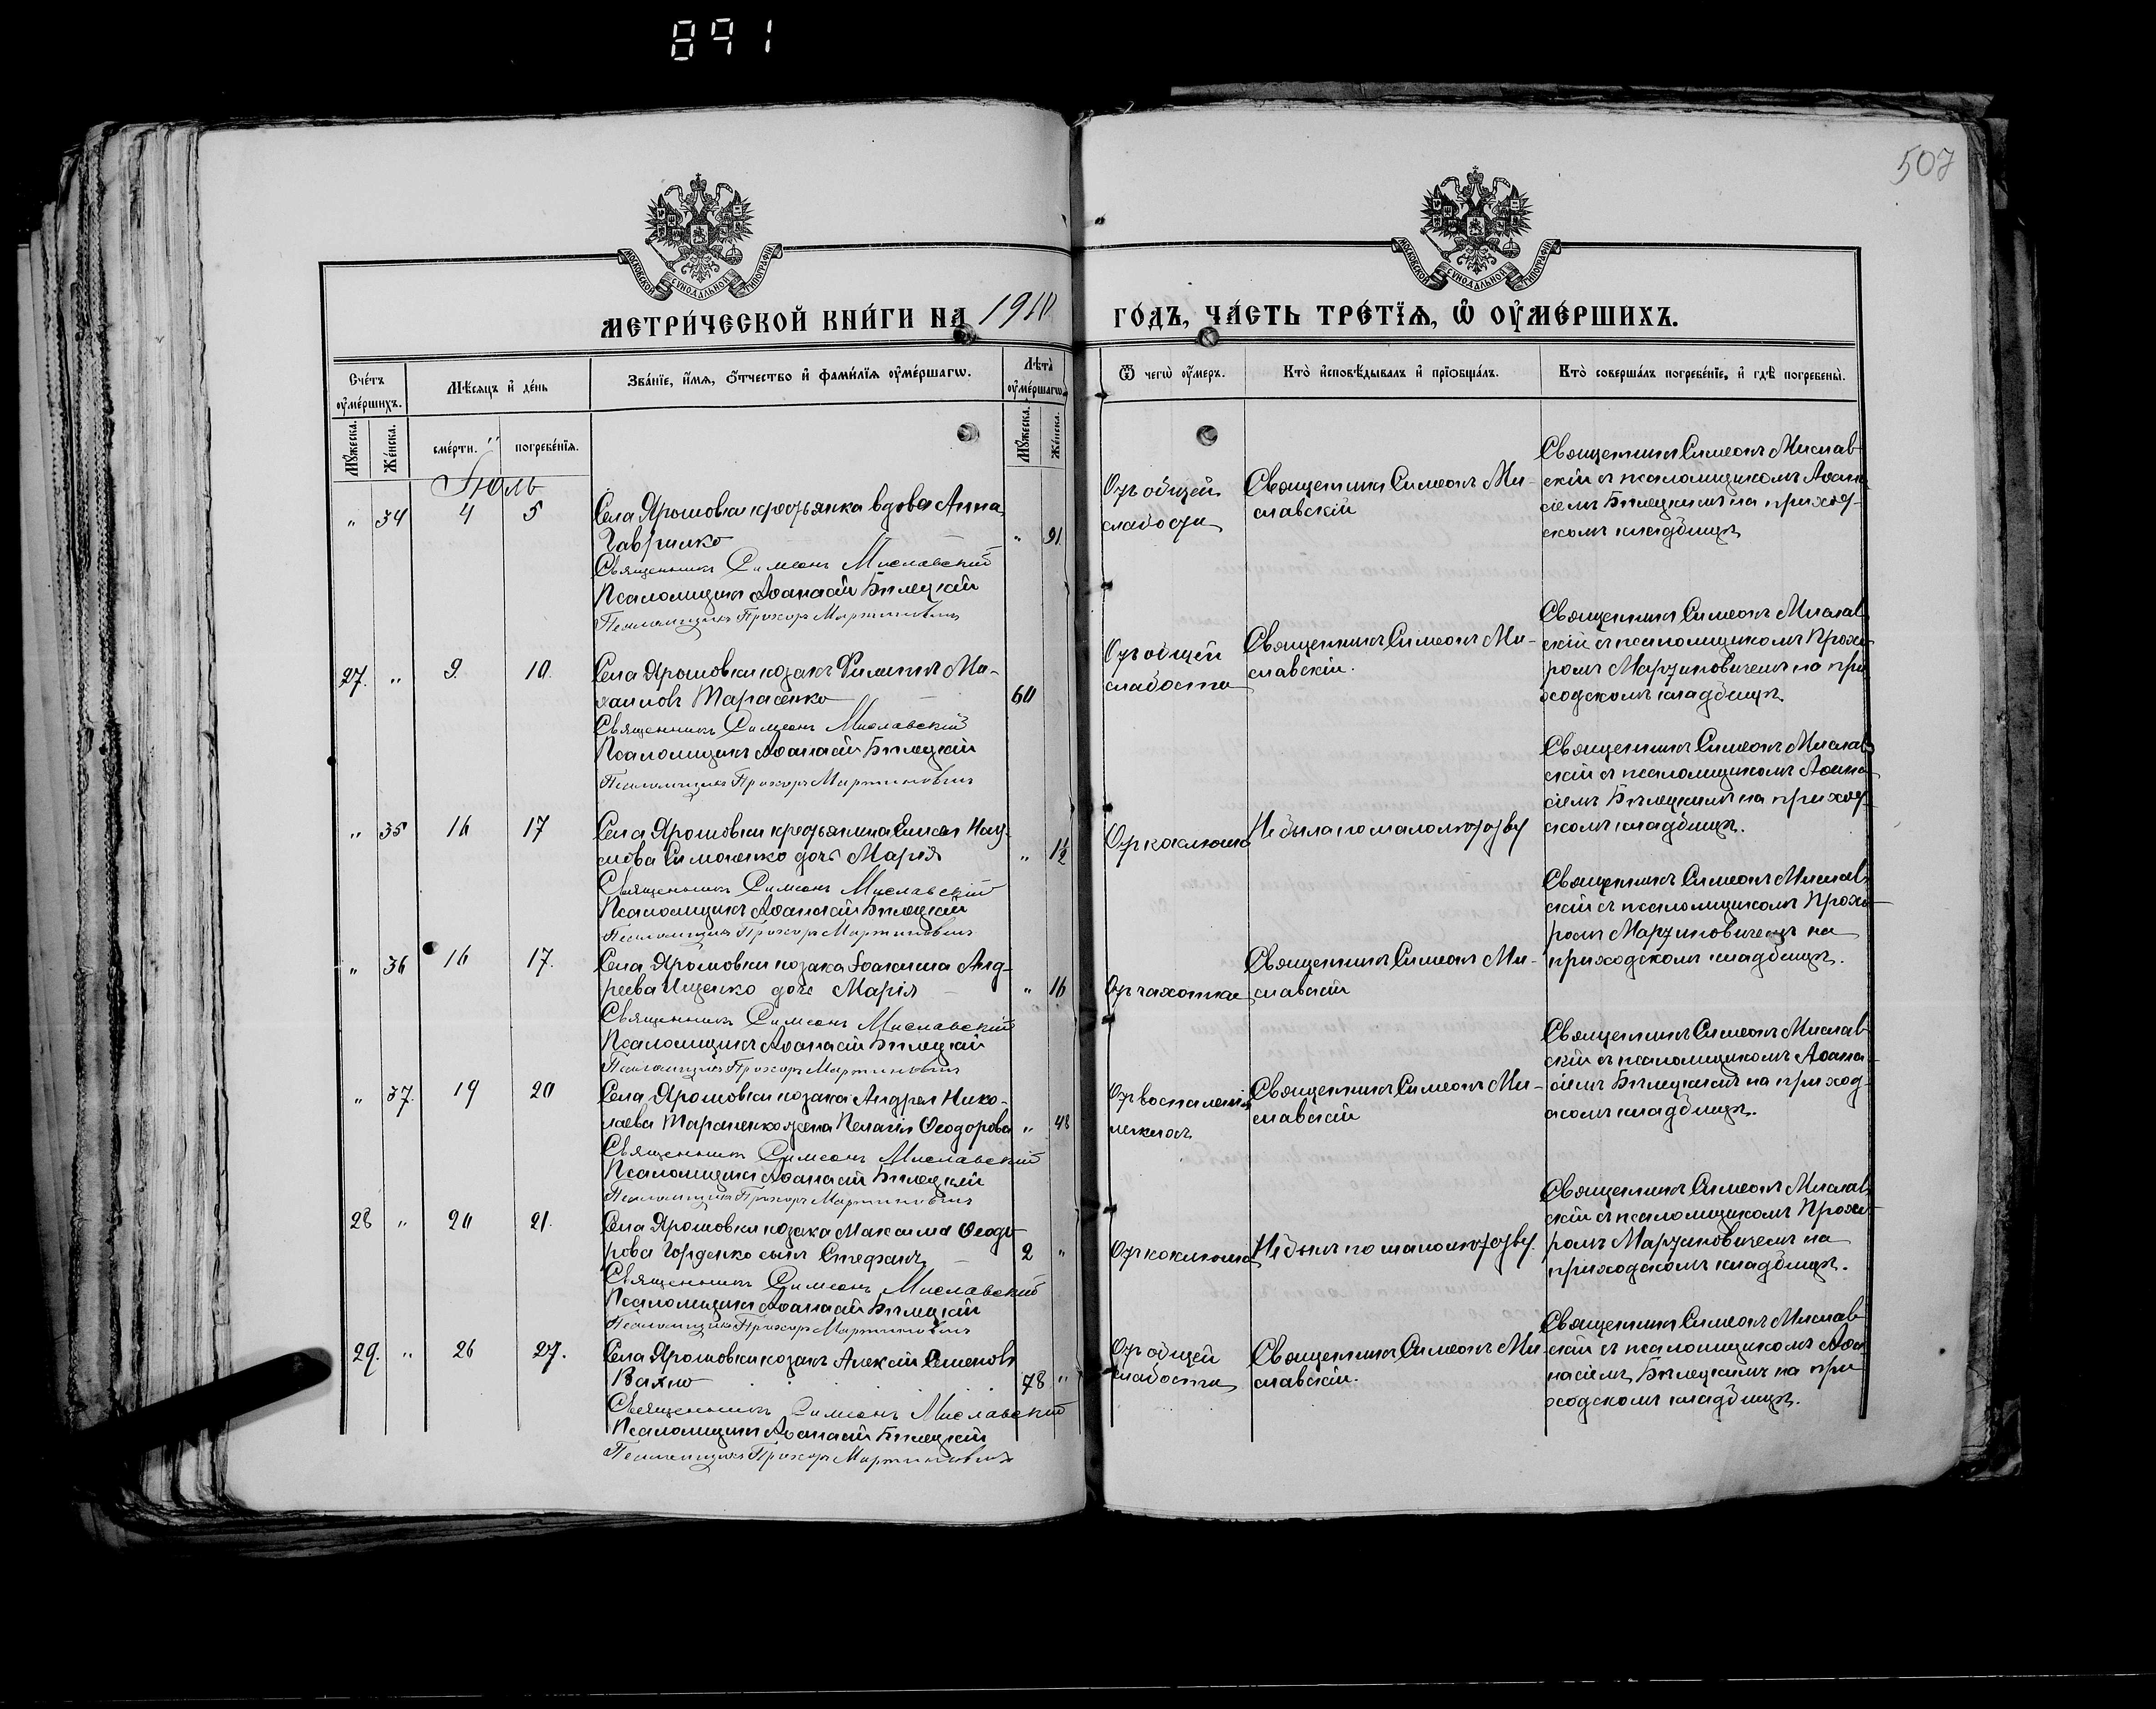 891
507
МОСКОВСКОЙ СѴНОДАЛЬНОЙ ТИПОГРАФІИ
МОСКОВСКОЙ СѴНОДАЛЬНОЙ ТИПОГРАФІИ
МЕТРИ́ЧЕСКОЙ КНИ́ГИ НА 1910
ГО́ДЪ, ЧА́СТЬ ТРЕ́ТЇѦ, Ѽ ОУ҆МЕ́РШИХЪ.
Сче́тъ оу҆ме́ршихъ.
Мѣ́сяцъ и҆ де́нь
Зва́нїе, и҆́мѧ, ѻ҆́тчество и҆ фами́лїѧ оу҆ме́ршагѡ.
Лѣ́та оу҆ме́ршагѡ.
Ѿ чегѡ̀ оу҆́меръ.
Кто̀ и҆сповѣ́дывалъ и҆ прїѻбща́лъ.
Кто̀ соверша́лъ погребе́нїе, и҆ гдѣ̀ погребены̀.
Мꙋ́жеска. Же́нска. сме́рти. погребе́нїѧ. Мꙋ́жеска. Же́нска.
Іюль
„ 34 4 5
Села Ярошовки крестьянка вдова Анна
Гаврилко „ 91
Священникъ Симеонъ Миславскій
Псаломщикъ Аѳанасій Билецкій
Псаломщикъ Прохоръ Мартиновичъ
Отъ общей
слабости
Священникъ Симеонъ Ми-
славскій
Священникъ Симеонъ Мислав-
скій съ псаломщикомъ Аѳана-
сіемъ Билецкимъ на приход-
скомъ кладбищѣ
27. „ 9. 10.
Села Ярошовки козакъ Филиппъ Ми-
хаиловъ Тарасенко 60
Священникъ Симеонъ Миславскій
Псаломщикъ Аѳанасій Билецкій
Псаломщикъ Прохоръ Мартиновичъ
Отъ общей
слабости
Священникъ Симеонъ Ми-
славскій.
Священникъ Симеонъ Мислав-
скій съ псаломщикомъ Прохо-
ромъ Мартиновичемъ на при-
ходскомъ кладбищѣ
„ 35 16 17
Села Ярошовки крестьянина Елисея Нау-
мова Симоненко дочь Марія „ 1½
Священникъ Симеонъ Миславскій
Псаломщикъ Аѳанасій Билецкій
Псаломщикъ Прохоръ Мартиновичъ
Отъ коклюша
Не была по малолѣтству
Священникъ Симеонъ Мислав-
скій съ псаломщикомъ Аѳана-
сіемъ Билецкимъ на приход-
скомъ кладбищѣ.
„ 36 16 17.
Села Ярошовки козака Іоакима Анд-
реева Ищенко дочь Марія „ 16
Священникъ Симеонъ Миславскій
Псаломщикъ Аѳанасій Билецкій
Псаломщикъ Прохоръ Мартиновичъ
Отъ чахотки
Священникъ Симеонъ Ми-
славскій
Священникъ Симеонъ Мислав-
скій съ псаломщикомъ Прохо-
ромъ Мартиновичемъ на
приходскомъ кладбищѣ.
„ 37. 19 20
Села Ярошовки козака Андрея Нико-
лаева Тарасенко жена Пелагія Ѳеодорова „ 48
Священникъ Симеонъ Миславскій
Псаломщикъ Аѳанасій Билецкій
Псаломщикъ Прохоръ Мартиновичъ
Отъ воспаленія
легкихъ
Священникъ Симеонъ Ми-
славскій
Священникъ Симеонъ Мислав-
скій съ псаломщикомъ Аѳана-
сіемъ Билецкимъ на приход-
скомъ кладбищѣ.
28 „ 20 21.
Села Ярошовки козака Максима Ѳеодо-
рова Горденко сынъ Стефанъ 2 „
Священникъ Симеонъ Миславскій
Псаломщикъ Аѳанасій Билецкій
Псаломщикъ Прохоръ Мартиновичъ
Отъ коклюша
Не былъ по малолѣтству.
Священникъ Симеонъ Мислав-
скій съ псаломщикомъ Прохо-
ромъ Мартиновичемъ на
приходскомъ кладбищѣ.
29. „ 26 27.
Села Ярошовки козакъ Алексій Семеновъ
Вахно 78 „
Священникъ Симеонъ Миславскій
Псаломщикъ Аѳанасій Билецкій
Псаломщикъ Прохоръ Мартиновичъ
Отъ общей
слабости
Священникъ Симеонъ Ми-
славскій.
Священникъ Симеонъ Мислав-
скій съ псаломщикомъ Аѳа-
насіемъ Билецкимъ на при-
ходскомъ кладбищѣ.